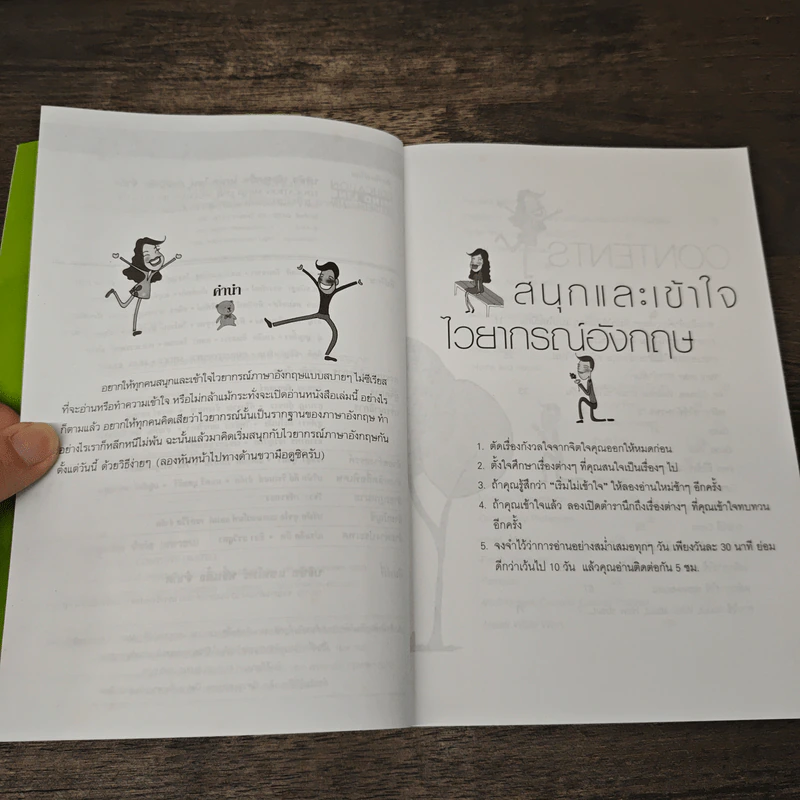 คำนำ
อยากให้ทุกคนสนุกและเข้าใจไวยากรณ์ภาษาอังกฤษแบบสบายๆ ไม่ซีเรียส
ที่จะอ่านหรือทำความเข้าใจ หรือไม่กล้าแม้กระทั่งจะเปิดอ่านหนังสือเล่มนี้ อย่างไร
ก็ตามแล้ว อยากให้ทุกคนคิดเสียว่าไวยากรณ์นั้นเป็นรากฐานของภาษาอังกฤษ ทำ
อย่างไรเราก็หลีกหนีไม่พ้น ฉะนั้นแล้วมาคิดเริ่มสนุกกับไวยากรณ์ภาษาอังกฤษกัน
ตั้งแต่วันนี้ ด้วยวิธีง่ายๆ (ลองหันหน้าไปทางด้านขวามือดูซิครับ)
สนุกและเข้าใจ
ไวยากรณ์อังกฤษ
1. ตัดเรื่องกังวลใจจากจิตใจคุณออกให้หมดก่อน
2. ตั้งใจศึกษาเรื่องต่างๆ ที่คุณสนใจเป็นเรื่องๆ ไป
3. ถ้าคุณรู้สึกว่า “เริ่มไม่เข้าใจ” ให้ลองอ่านใหม่ช้าๆ อีกครั้ง
4. ถ้าคุณเข้าใจแล้ว ลองเปิดตำรานึกถึงเรื่องต่างๆ ที่คุณเข้าใจทบทวน
อีกครั้ง
5. จงจำไว้ว่าการอ่านอย่างสม่ำเสมอทุกๆ วัน เพียงวันละ 30 นาที ย่อม
ดีกว่าเว้นไป 10 วัน แล้วคุณอ่านติดต่อกัน 5 ชม.